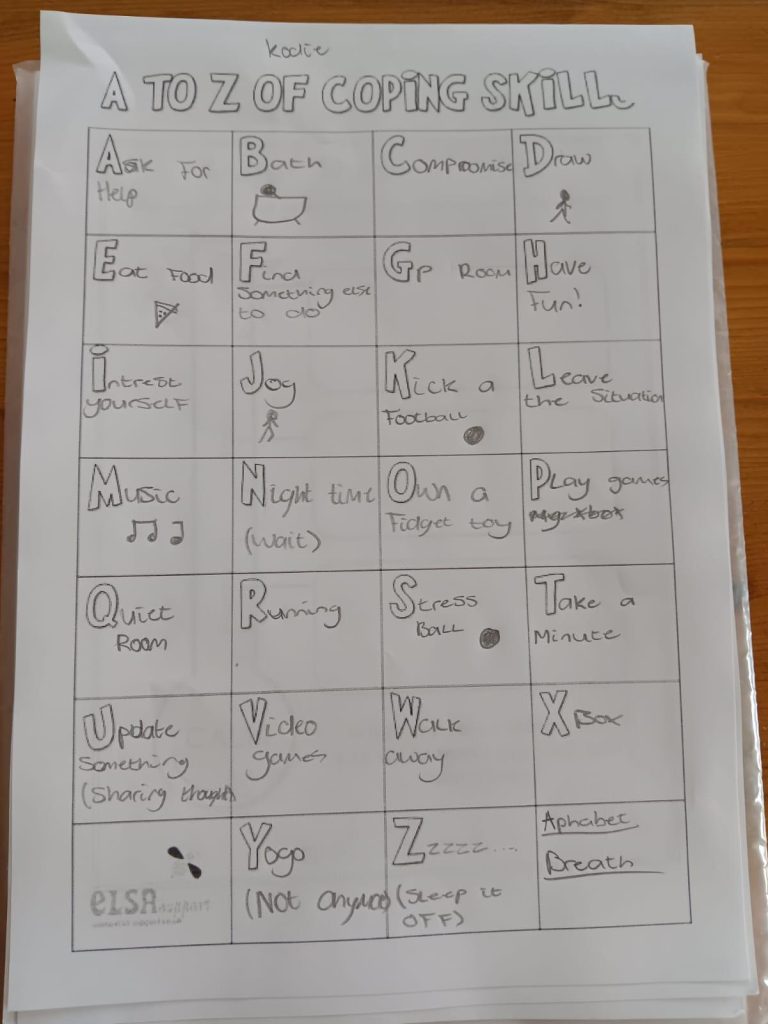 Kodie
A TO Z OF COPING SKILLS
Ask For
Help
Bath
Compromise
Draw
Eat Food
Find
Something else
to do
Gp Room
Have
Fun!
Intrest
yourself
Jog
Kick a
Football
Leave
the Situation
Music
Night time
(wait)
Own a
Fidget toy
Play games
Quiet
Room
Running
Stress
Ball
Take a
Minute
Update
Something
(Sharing thought)
Video
games
Walk
away
XBox
ELSA support
Yogo
(Not anymore)
Zzzzz....
(Sleep it
OFF)
Aphabet
Breath